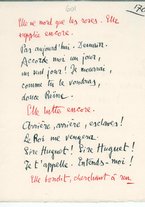 601
170
Elle ne mord que les roses. Elle
supplie encore.
Pas aujourd'hui. Demain.
Accorde-moi un jour,
un seul jour ! Je mourrai,
comme tu le voudras,
douce Reine.
Elle lutte encore.
Arrière, arrière, esclaves !
Le Roi me vengera.
Sire Hugues ! Sire Hugues !
Je t'appelle. Entends-moi !
Elle bondit, cherchant à